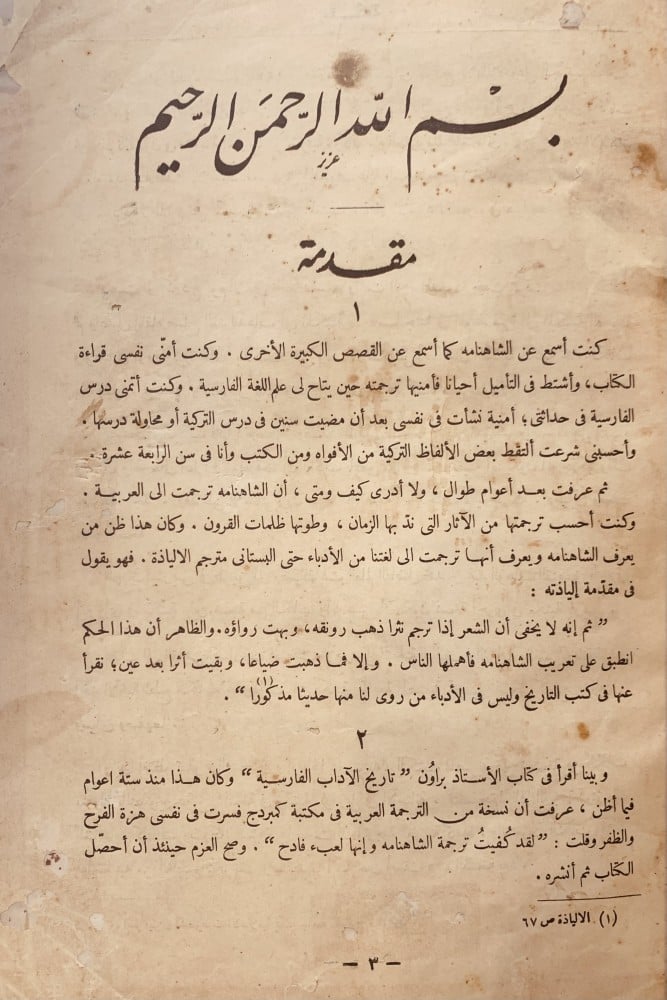 بسم الله الرحمن الرحيم
عزيز
مقدمة
١
كنت أسمع عن الشاهنامه كما أسمع عن القصص الكبيرة الأخرى . وكنت أمنّى نفسى قراءة
الكتاب، وأشتط فى التأميل أحيانا فأمنيها ترجمته حين يتاح لى علم اللغة الفارسية . وكنت أتمنى درس
الفارسية فى حداثتى؛ أمنية نشأت فى نفسى بعد أن مضيت سنين فى درس التركية أو محاولة درسها .
وأحسبنى شرعت ألتقط بعض الألفاظ التركية من الأفواه ومن الكتب وأنا فى سن الرابعة عشرة .
ثم عرفت بعد أعوام طوال ، ولا أدرى كيف ومتى ، أن الشاهنامه ترجمت الى العربية .
وكنت أحسب ترجمتها من الآثار التى ندّ بها الزمان ، وطوتها ظلمات القرون . وكان هذا ظن من
يعرف الشاهنامه ويعرف أنها ترجمت الى لغتنا من الأدباء حتى البستانى مترجم الالياذة . فهو يقول
فى مقدّمة إلياذته :
” ثم إنه لا يخفى أن الشعر إذا ترجم نثرا ذهب رونقه، وبهت رواؤه. والظاهر أن هذا الحكم
انطبق على تعريب الشاهنامه فأهملها الناس . وإلا فما ذهبت ضياعا، وبقيت أثرا بعد عين؛ نقرأ
عنها فى كتب التاريخ وليس فى الأدباء من روى لنا منها حديثا مذكورا(١) “ .
٢
وبينا أقرأ فى كتاب الأستاذ براوُن ” تاريخ الآداب الفارسية “ وكان هذا منذ ستة اعوام
فيما أظن ، عرفت أن نسخة من الترجمة العربية فى مكتبة كمبردج فسرت فى نفسى هزة الفرح
والظفر وقلت : ” لقد كُفيتُ ترجمة الشاهنامه وإنها لعبء فادح “ . وصح العزم حينئذ أن أحصّل
الكتاب ثم أنشره .
(١) الالياذة ص ٦٧
— ٣ —